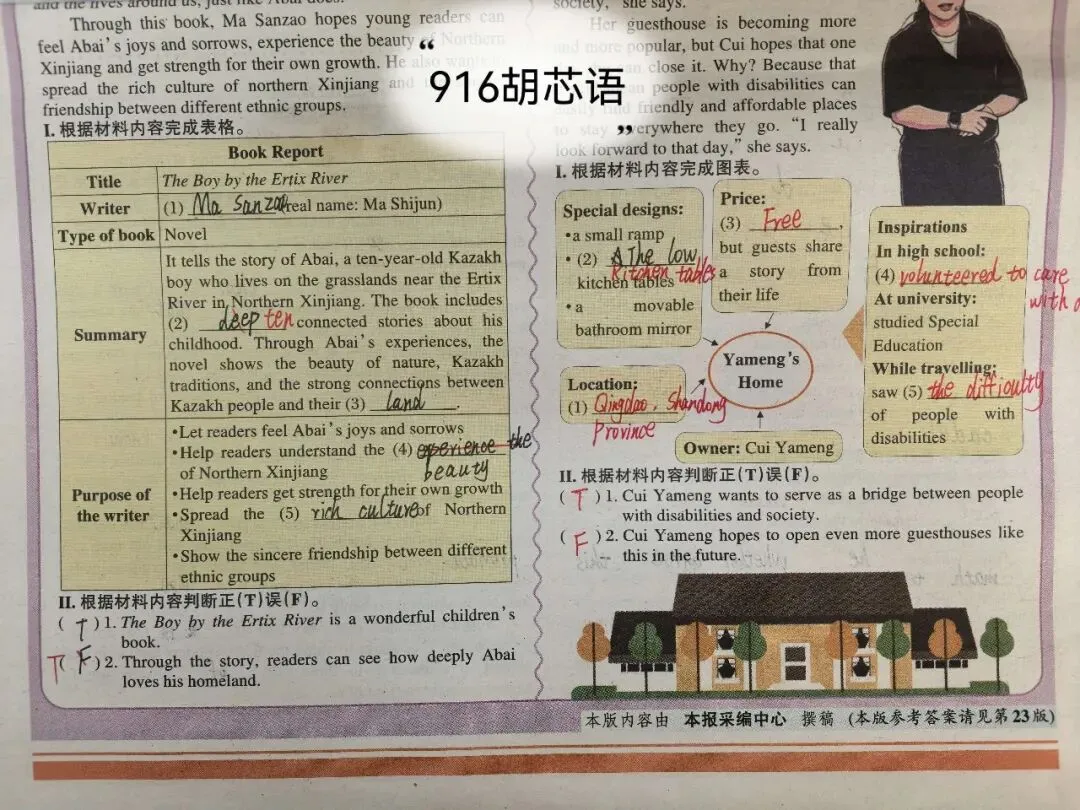 and the lives around us, just like Abai does.
Through this book, Ma Sanzao hopes young readers can
feel Abai's joys and sorrows, experience the beauty Northern
Xinjiang and get strength for their own growth. He also wants
spread the rich culture of northern Xinjiang and
friendship between different ethnic groups.
I. 根据材料内容完成表格。
Book Report
Title The Boy by the Ertix River
Writer (1) Ma Sanzao (real name: Ma Shijun)
Type of book Novel
Summary
It tells the story of Abai, a ten-year-old Kazakh
boy who lives on the grasslands near the Ertix
River in Northern Xinjiang. The book includes
(2) deep ten connected stories about his
childhood. Through Abai's experiences, the
novel shows the beauty of nature, Kazakh
traditions, and the strong connections between
Kazakh people and their (3) land.
Purpose of
the writer
•Let readers feel Abai's joys and sorrows
•Help readers understand the (4) experience the
beauty
of Northern Xinjiang
•Help readers get strength for their own growth
•Spread the (5) rich culture of Northern
Xinjiang
•Show the sincere friendship between different
ethnic groups
II. 根据材料内容判断正(T)误(F)。
( T ) 1. The Boy by the Ertix River is a wonderful children's
book.
T ( F ) 2. Through the story, readers can see how deeply Abai
loves his homeland.
“
916胡芯语
”
society," she says.
Her guesthouse is becoming more
and more popular, but Cui hopes that one
close it. Why? Because that
people with disabilities can
find friendly and affordable places
to stay everywhere they go. "I really
look forward to that day," she says.
I. 根据材料内容完成图表。
Special designs:
•a small ramp
•(2) The low
kitchen tables
kitchen tables
•a movable
bathroom mirror
Price:
(3) Free,
but guests share
a story from
their life
Location:
(1) Qingdao, Shandong
Province
Yameng's
Home
Owner: Cui Yameng
Inspirations
In high school:
(4) volunteered to care
with
At university:
studied Special
Education
While travelling:
saw (5) the difficulty
of people with
disabilities
II. 根据材料内容判断正(T)误(F)。
( T ) 1. Cui Yameng wants to serve as a bridge between people
with disabilities and society.
( F ) 2. Cui Yameng hopes to open even more guesthouses like
this in the future.
本版内容由 本报采编中心 撰稿 (本版参考答案请见第23版)